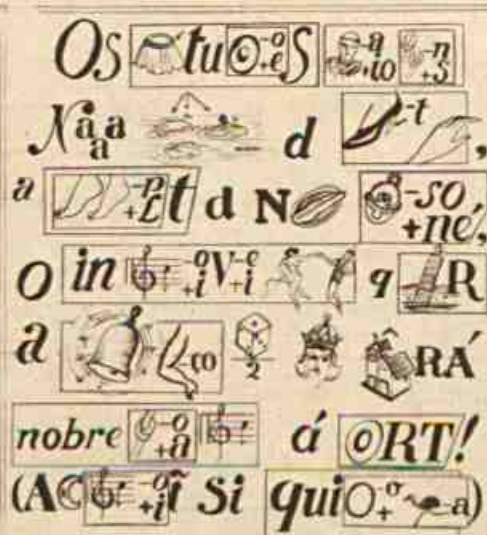 Os tu -o +e S -a +io -n +s
Naaa d -t,
a -p +L t d N -so +né,
O in -o +i V -e +i q R
a ço 2 RÁ
nobre -o +a á ORT!
(AC -o +i i Si qui O + -a)